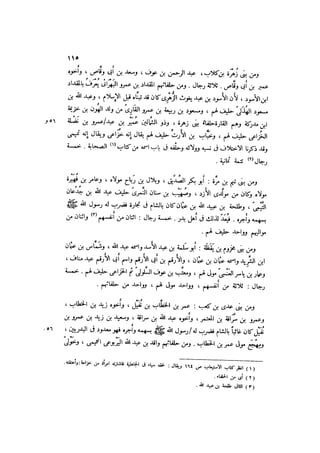 ١١٥
ومن بنى زهرة بن كلاب : عبد الرحمن بن عوف ، وسعد بن أبى وقاص ، وأخوه
عمير بن أبى وقاص . ثلاثة رجال . ومن حلفائهم المقداد بن عمرو البهرانى يعرف بالمقداد
ابن الأسود ، لأن الأسود بن عبد يغوث الزهرى كان قد تبناه قبل الإسلام ، وعبد الله بن
مسعود الهذلى حليف لهم ، ومسعود بن ربيعة بن عمرو القارى من ولد الهون بن خزيمة
ابن مدركة وهم القارة حلفاء بنى زهرة ، وذو الشمالين عمير بن عبد/عمرو بن نضلة
الخزاعى حليف لهم ، وخباب بن الأرت حليف لهم يقال إنه خزاعى ويقال إنه تميمى
وقد ذكرنا الاختلاف فى نسبه وولائه وحلفه فى باب اسمه من كتاب (١) الصحابة . خمسة
رجال (٢) تتمة ثمانية .
ومن بنى تيم بن مرة : أبو بكر الصديق ، وبلال بن رباح مولاه ، وعامر بن فهيرة
مولاه وكان من مولدى الأزد ، وصهيب بن سنان النمرى حليف عبد الله بن جدعان
التيمى ، وطلحة بن عبيد الله بن عثمان كان بالشام فى تجارة فضرب له رسول الله ﷺ
بسهمه وأجره . فيعد لذلك فى أهل بدر . خمسة رجال : اثنان من أنفسهم (٣) واثنان من
مواليهم وواحد حليف لهم .
ومن بنى مخزوم بن يقظة : أبو سلمة بن عبد الأسد واسمه عبد الله ، وشماس بن عثمان
ابن الشريد واسمه عثمان بن عثمان ، والأرقم بن أبى الأرقم واسم أبى الأرقم عبد مناف ،
وعمار بن ياسر العنسى مولى لهم ، ومعتب بن عوف السلولى ثم الخزاعى حليف لهم . خمسة
رجال : ثلاثة من أنفسهم ، وواحد مولى لهم ، وواحد من حلفائهم .
ومن بنى عدى بن كعب : عمر بن الخطاب بن نفيل ، وأخوه زيد بن الخطاب ،
وعمرو بن سراقة بن المعتمر ، وأخوه عبد الله بن سراقة ، وسعيد بن زيد بن عمرو بن
نفيل كان غائبا بالشام فضرب له /رسول الله ﷺ بسهمه وأجره فهو معدود فى البدريين ،
ومهجع مولى عمر بن الخطاب . ومن حلفائهم واقد بن عبد الله اليربوعى التميمى ، وخولى
(١) انظر كتاب الاستيعاب ص ١٦٤
(٢) أى من الحلفاء .
(٣) الثانى طلحة بن عبيد الله .